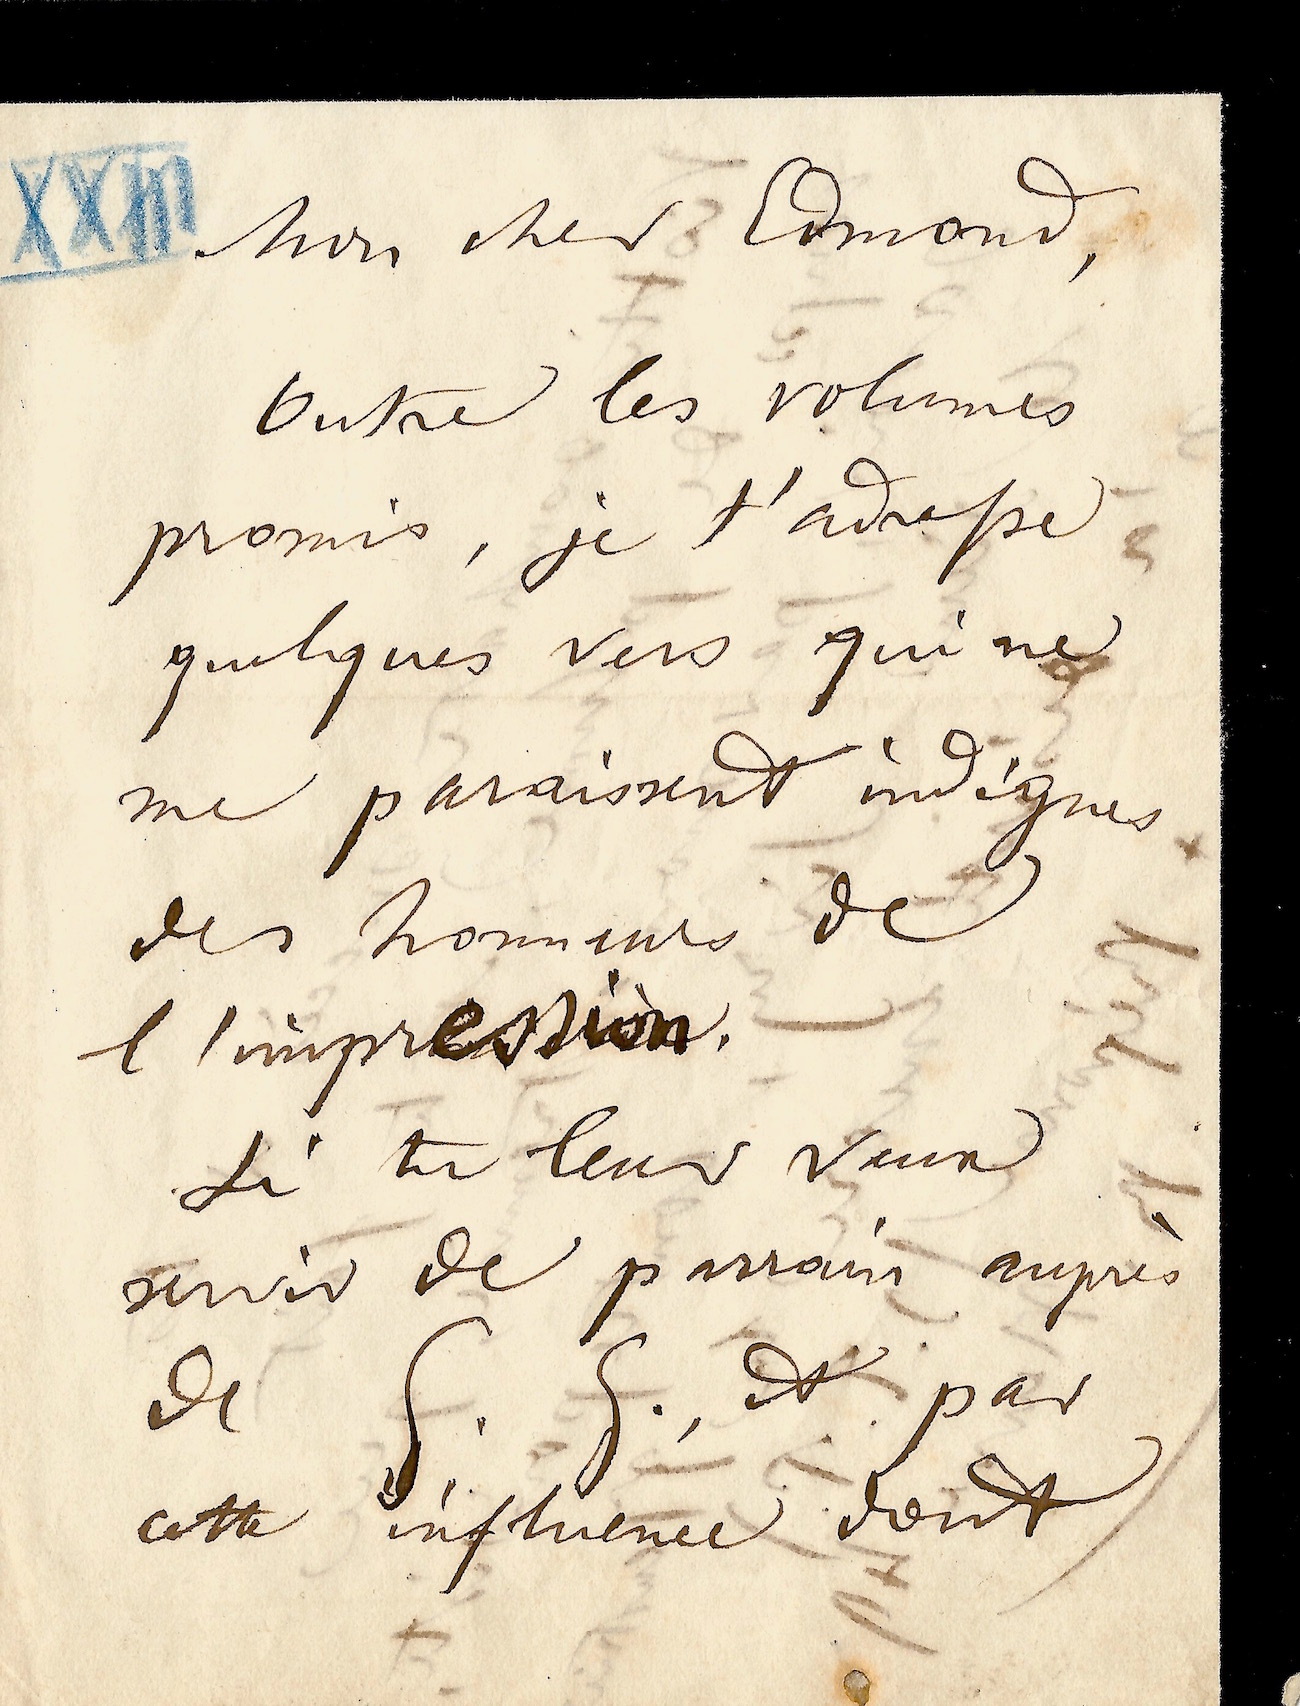 XXIII
Mon cher Edmond,
Outre les volumes
promis, je t'adresse
quelques vers qui ne
me paraissent indignes
des honneurs de
l'impression.
Si tu leur veux
servir de parrain auprès
de G. G., et par
cette influence dont